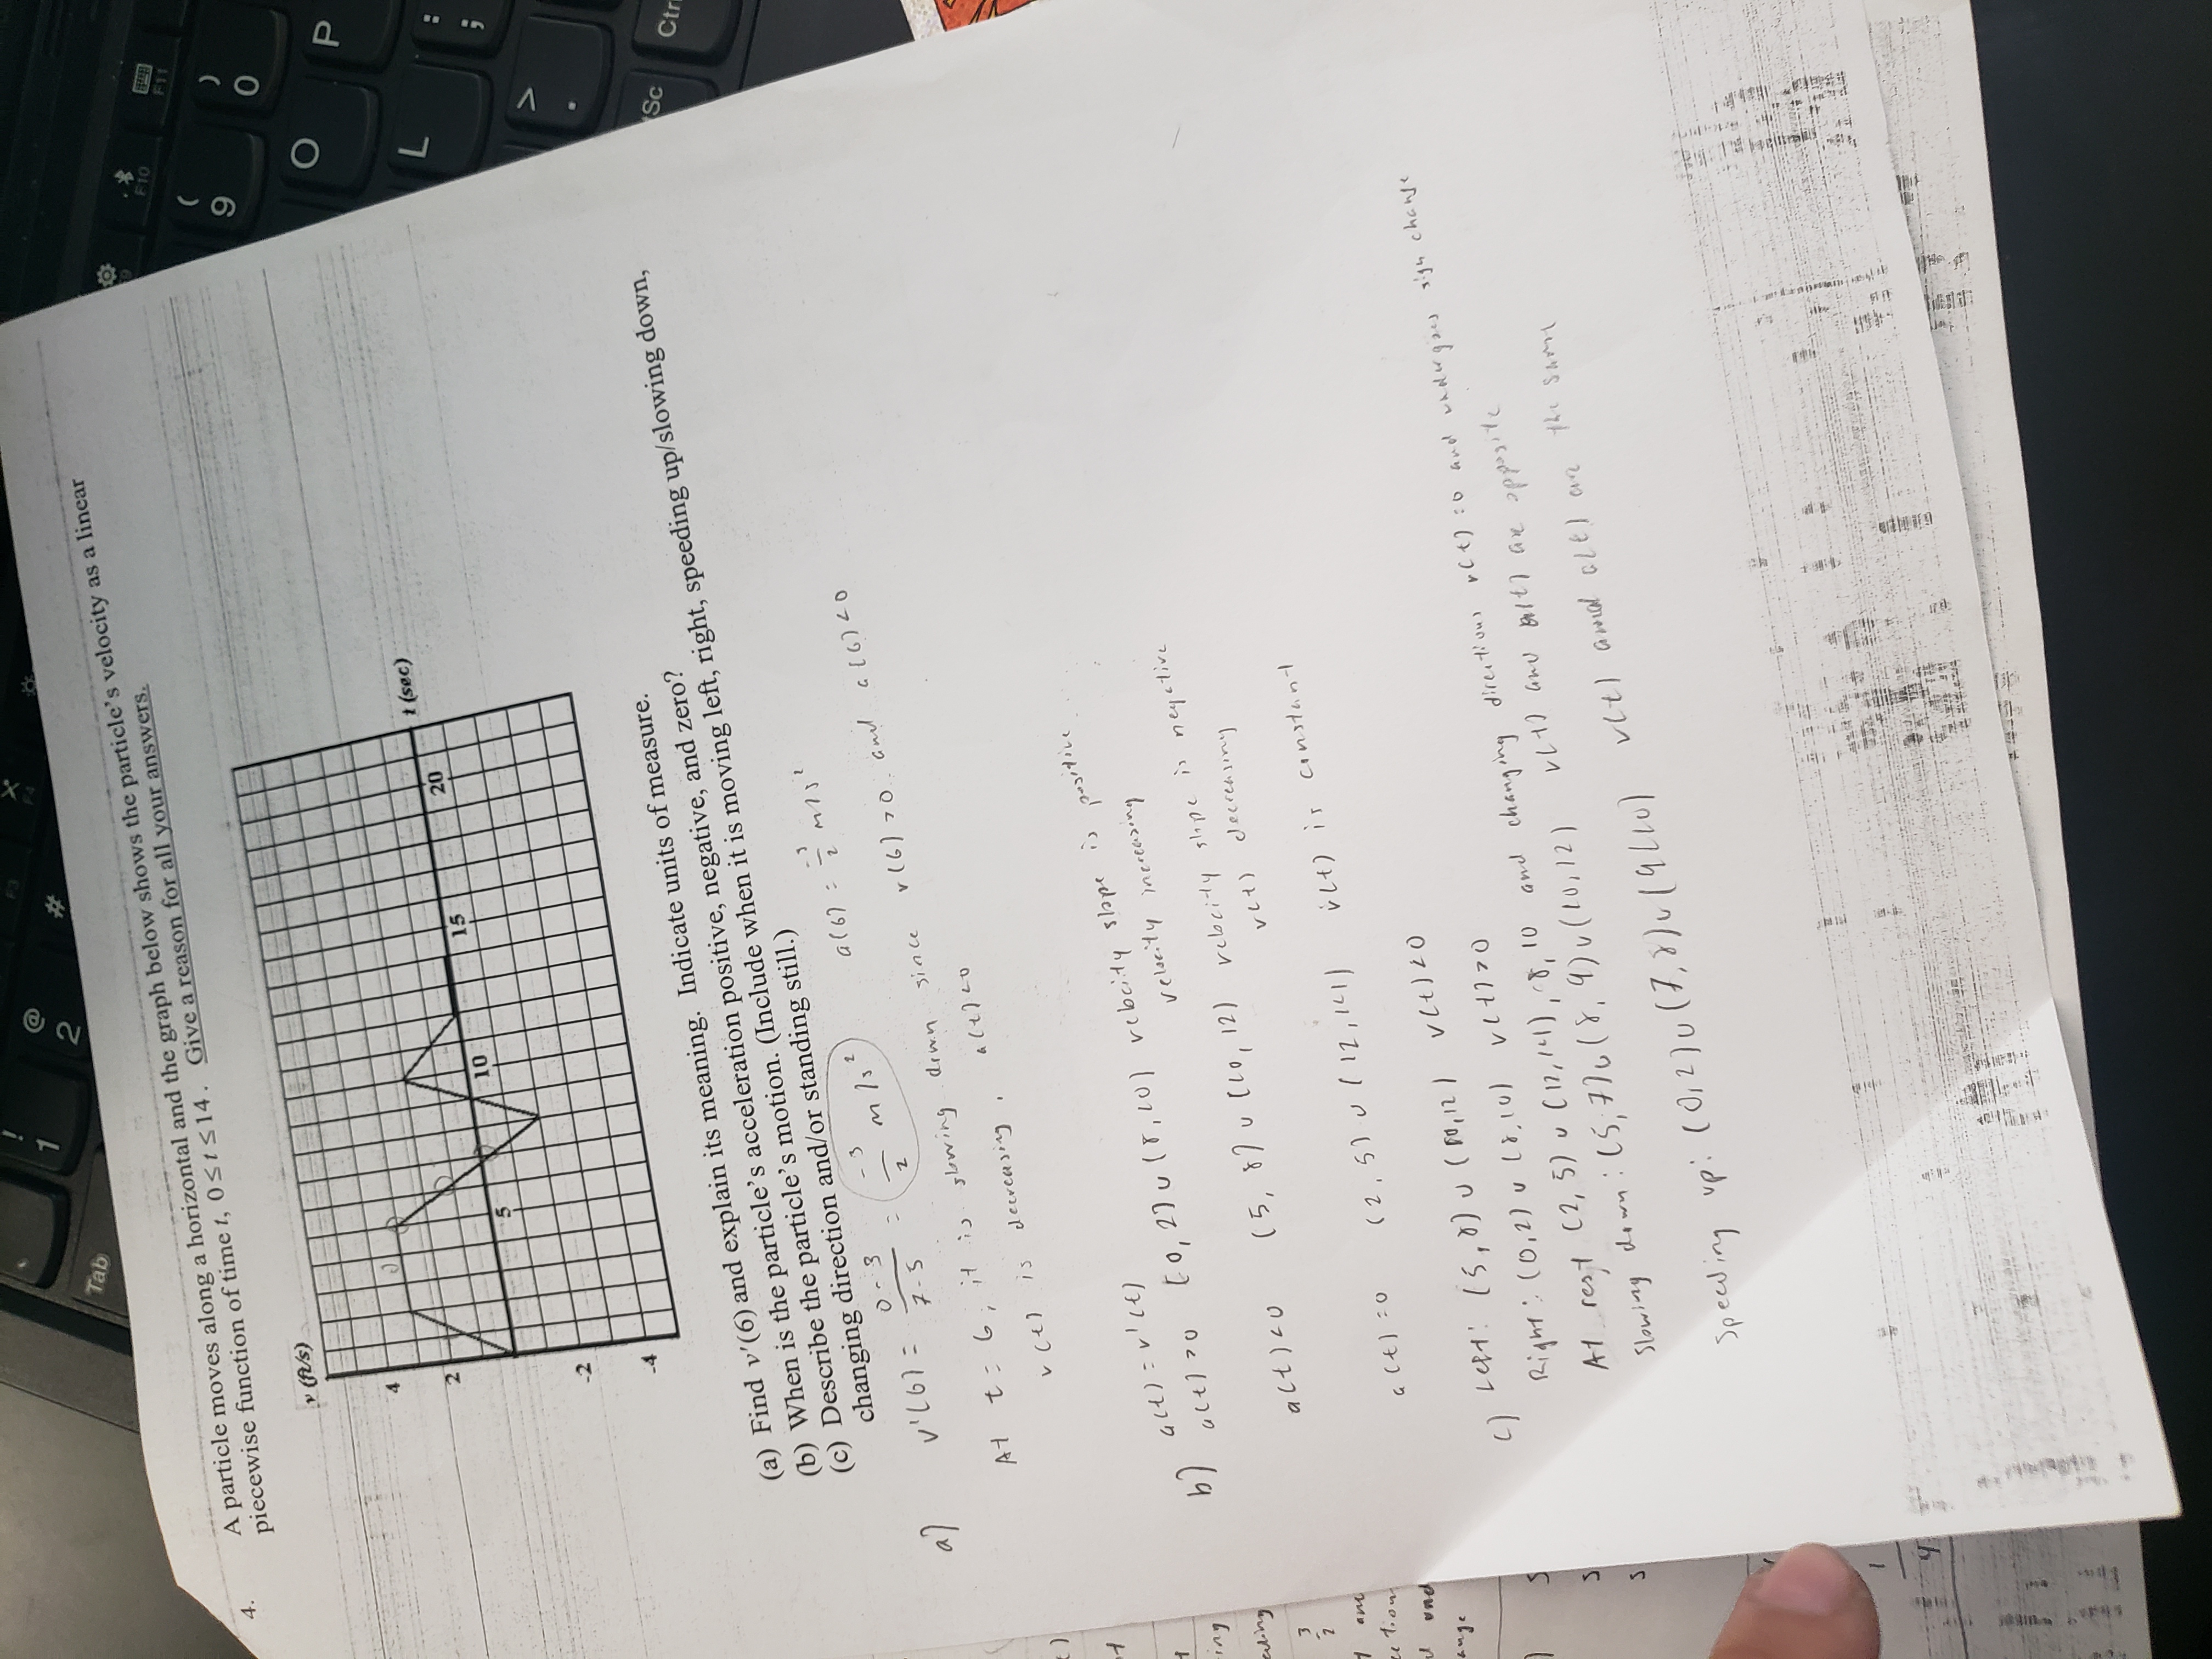 !
1
@
2
#
F3
F4
Tab
F10
F11
(
9
)
0
O
P
L
:
;
>
.
Sc
Ctr
4. A particle moves along a horizontal and the graph below shows the particle's velocity as a linear
piecewise function of time t, 0≤t≤14. Give a reason for all your answers.
v (ft/s)
4
2
-2
-4
5
10
15
20
t (sec)
(a) Find v'(6) and explain its meaning. Indicate units of measure.
(b) When is the particle's acceleration positive, negative, and zero?
(c) Describe the particle's motion. (Include when it is moving left, right, speeding up/slowing down,
changing direction and/or standing still.)
a) v'(6) = 0-3/7-5 = -3/2 m/s² a(6) = -3/2 m/s²
At t = 6, it is slowing down since v(6) >0 and a(6) <0
v(t) is decreasing, a(t) <0
a(t) = v'(t)
b) a(t) >0 [0, 2) ∪ (8, 10) velocity slope is positive
velocity increasing
a(t) <0 (5, 8) ∪ (10, 12) velocity slope is negative
v(t) decreasing
a(t) =0 (2, 5) ∪ (12, 14) v(t) is constant
c) Left: (5, 8) ∪ (10, 12) v(t) <0
Right: (0, 2) ∪ (8, 10) v(t) >0
At rest (2, 5) ∪ (12, 14), 8, 10 and changing directions v(t) =0 and undergoes sign change
Slowing down: (5, 7) ∪ (8, 9) ∪ (10, 12) v(t) and a(t) are opposite
Speeding up: (0, 2) ∪ (7, 8) ∪ (9, 10) v(t) and a(t) are the same